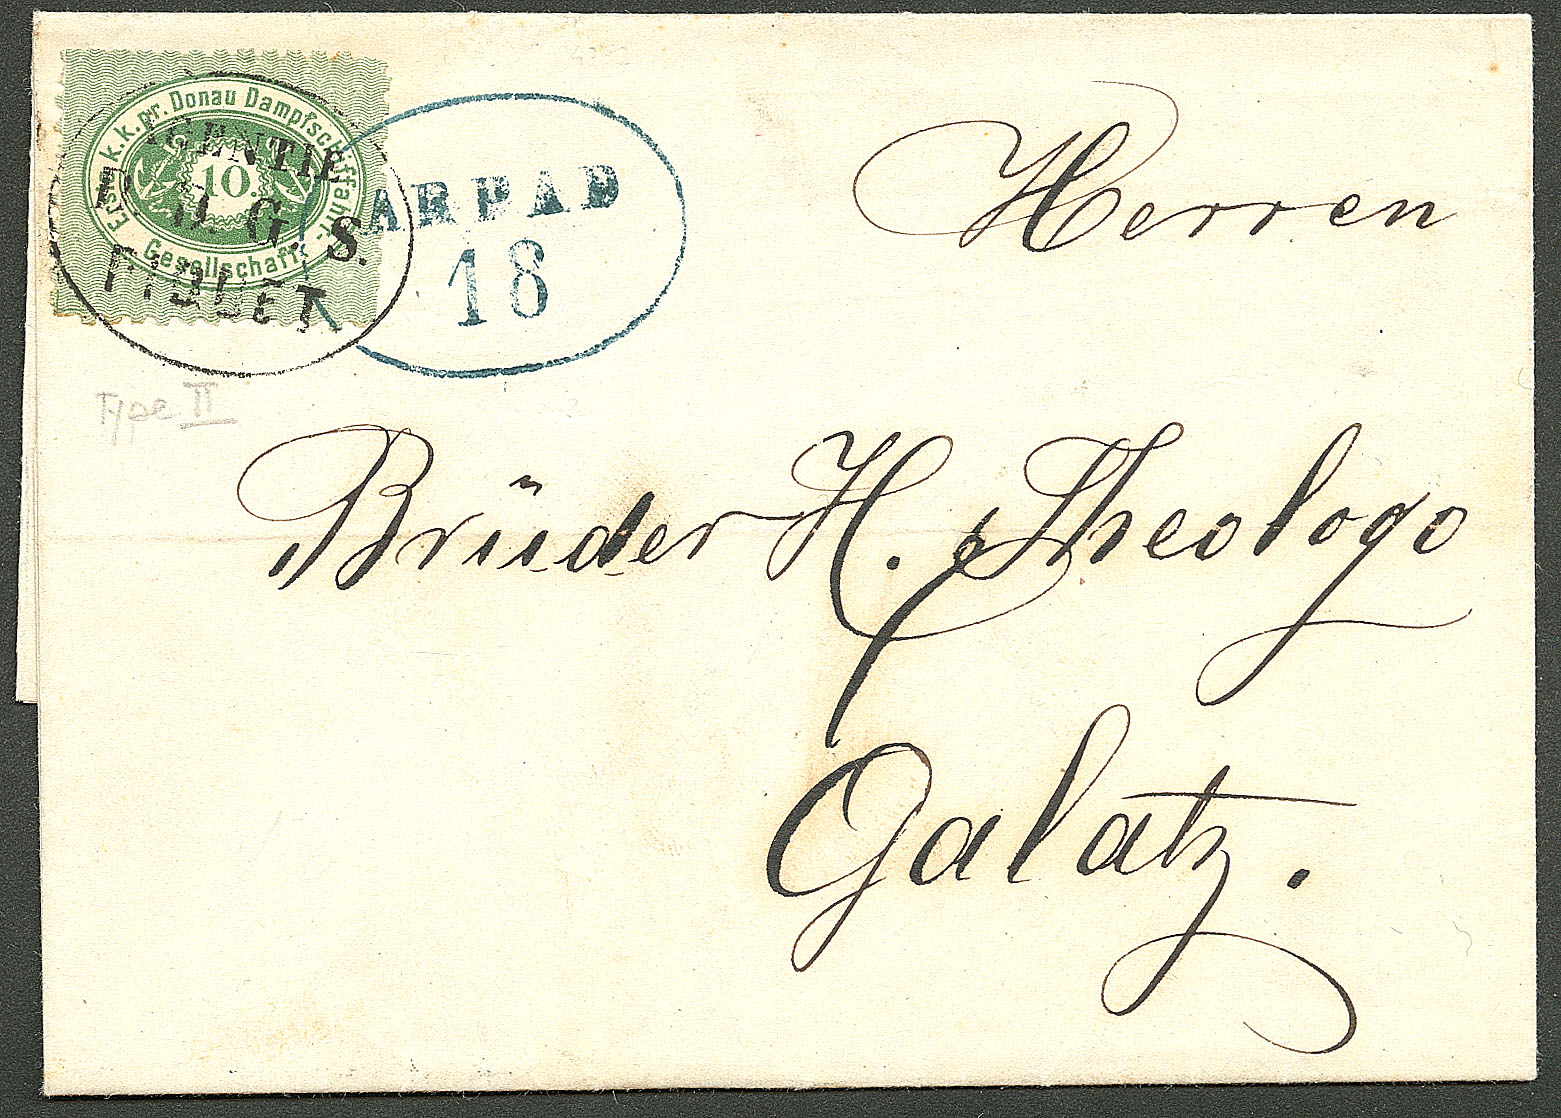 Erste k. k. pr. Donau Dampfschiffahrt-
Gesellschaft.
10.
AGENTIE
D. D. G. S.
ARPAD
18
Type II
Herren
Brüder H. Theologo
Galatz.